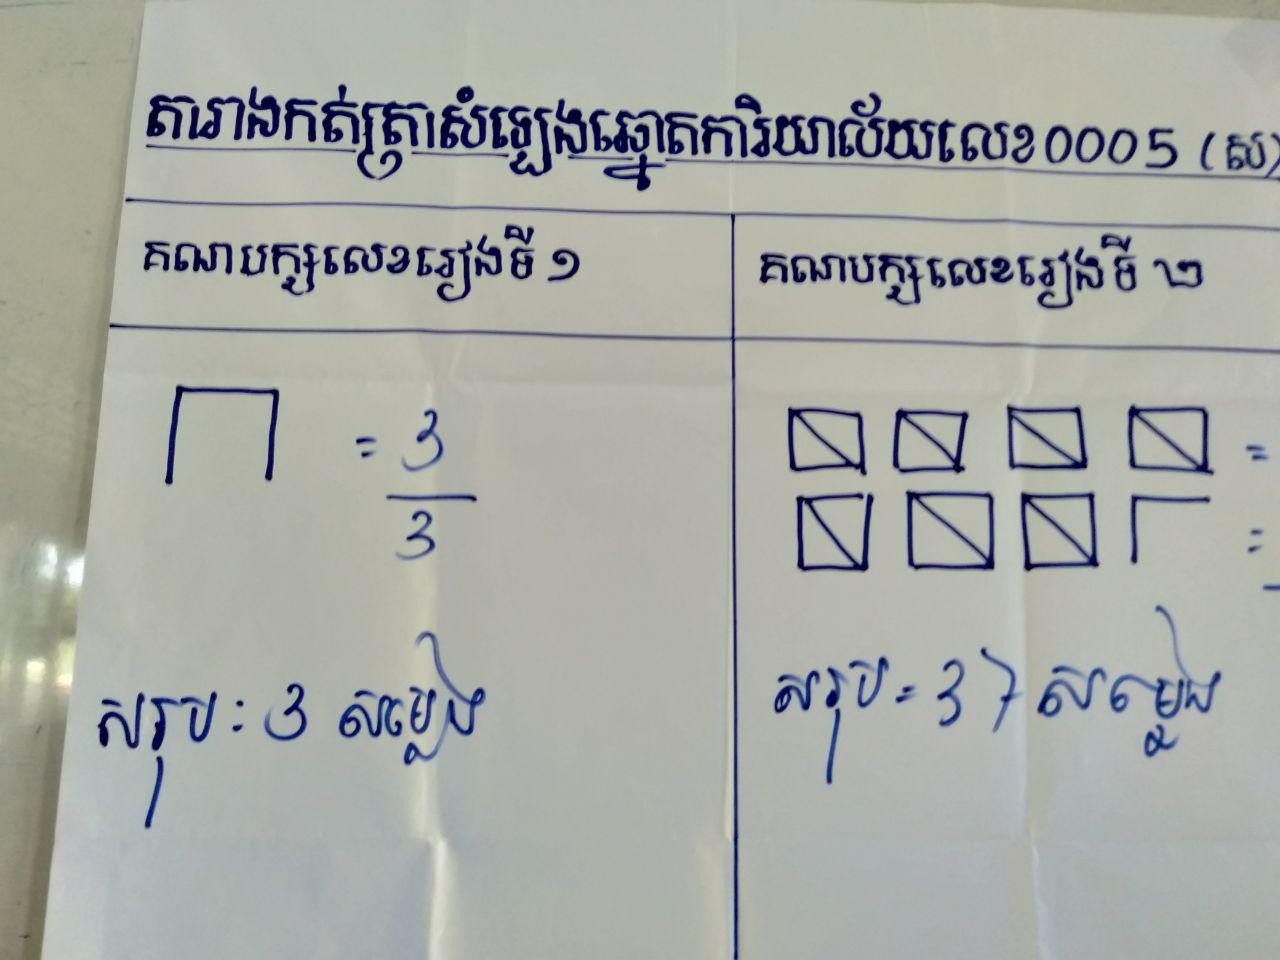 តារាងកត់ត្រាសំឡេងឆ្នោតការិយាល័យលេខ0005 (ស)
គណបក្សលេខរៀងទី ១
គណបក្សលេខរៀងទី ២
= 3
3
=
=
សរុប: 3 សម្លេង
សរុប = 37 សម្លេង